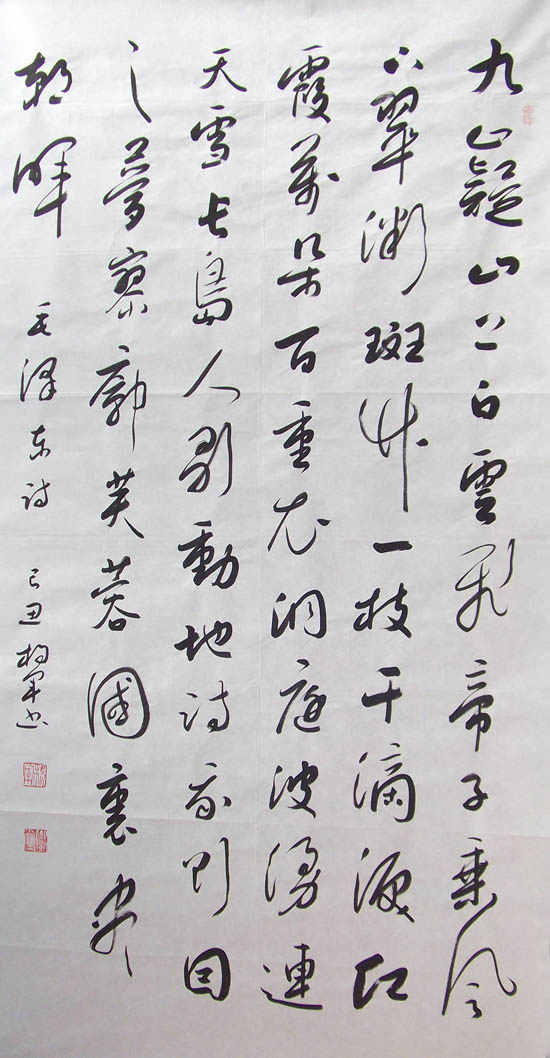 九嶷山上白雲飛帝子乘風
下翠微斑竹一枝千滴淚紅
霞萬朵百重衣洞庭波湧連
天雪長島人歌動地詩我欲因
之夢寥廓芙蓉國裏盡
朝暉 毛澤東詩 己丑